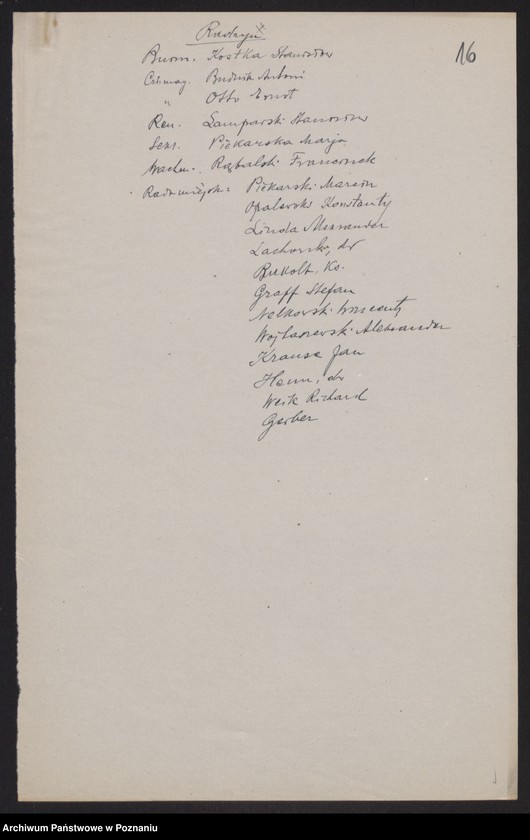 16
Burm. Kostka Stanisław
Czł. mag. Budnik Antoni
" Otto Ernst
Ren. Lamparski Stanisław
Sekr. Piekarska Marja
Wachm. Rąbalski Franciszek
Rada miejsk: Piekarski Marcin
Opalewski Konstanty
Linda Aleksander
dr
Bukolt, Ks.
Graff Stefan
Nelkowski Wincenty
Wojtaszewski Aleksander
Krause Jan
dr
Weik Richard
Gerber
Archiwum Państwowe w Poznaniu